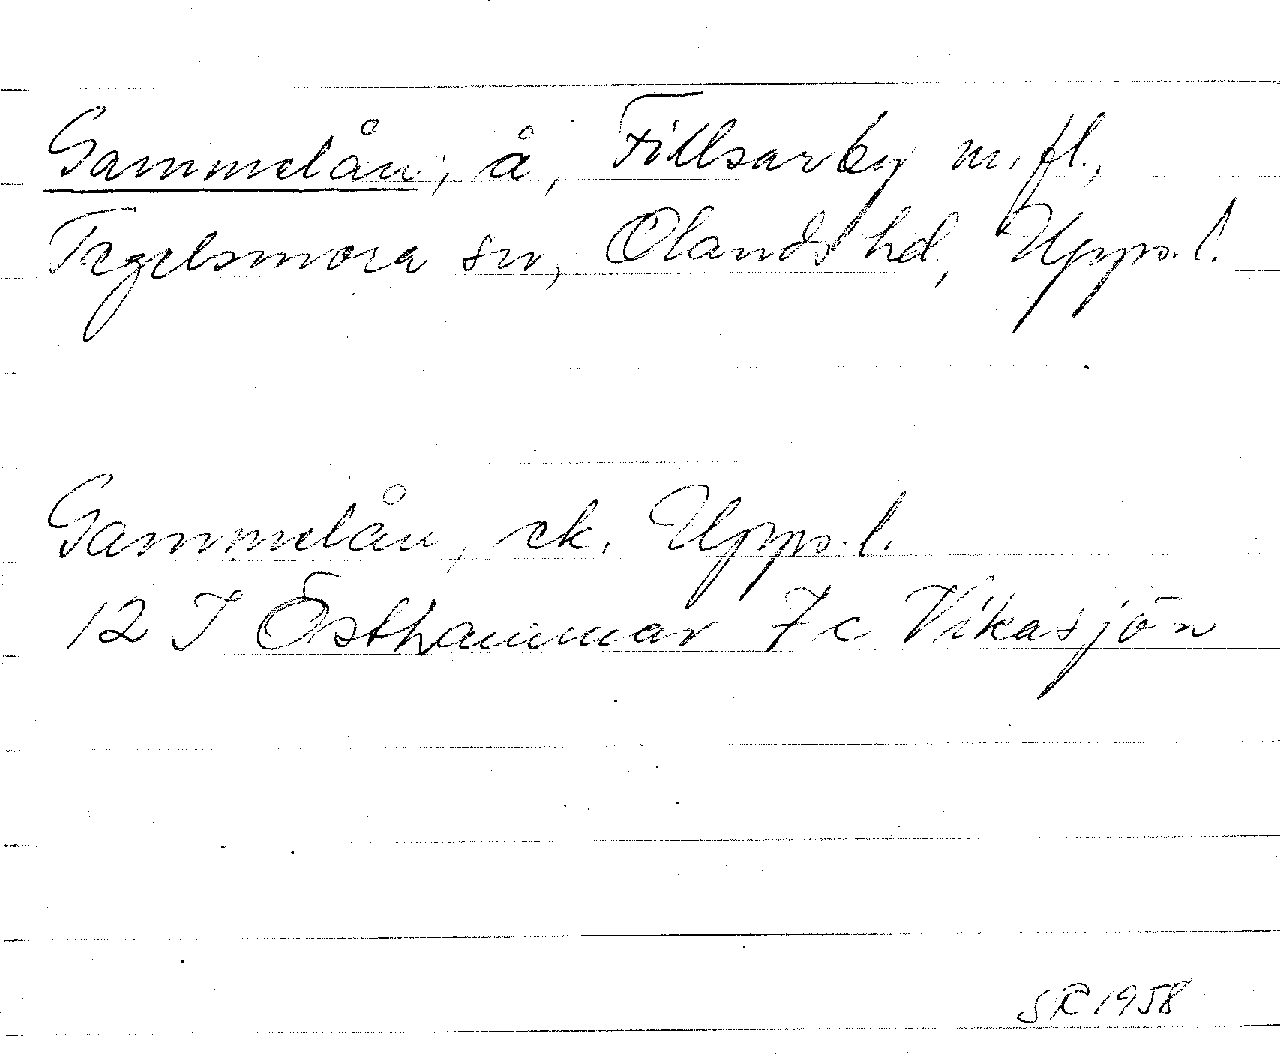 Gammelån, å, Fillsarby m. fl.,
Tegelsmora sn, Olands hd, Upps. l.
Gammelån, ek. Upps. l.
12 I Östhammar 7 c Vikasjön
SR 1958